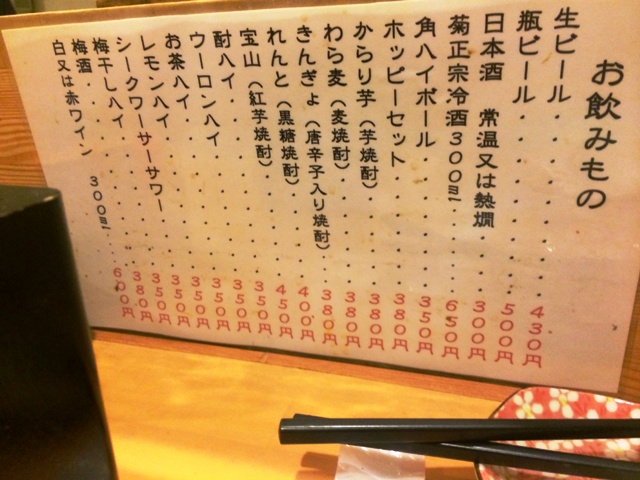 お飲みもの
生ビール・・・・・・・・430円
瓶ビール・・・・・・・・500円
日本酒　常温又は熱燗・・300円
菊正宗冷酒300ml・・・650円
角ハイボール・・・・・・350円
ホッピーセット・・・・・380円
からり芋（芋焼酎）・・・380円
わら麦（麦焼酎）・・・・380円
きんぎょ（唐辛子入り焼酎）・380円
れんと（黒糖焼酎）・・・400円
宝山（紅芋焼酎）・・・・450円
酎ハイ・・・・・・・・・350円
ウーロンハイ・・・・・・350円
お茶ハイ・・・・・・・・350円
レモンハイ・・・・・・・350円
シークワーサーサワー・・350円
梅干しハイ・・・・・・・350円
梅酒・・・・・・・・・・380円
白又は赤ワイン　300ml・・600円